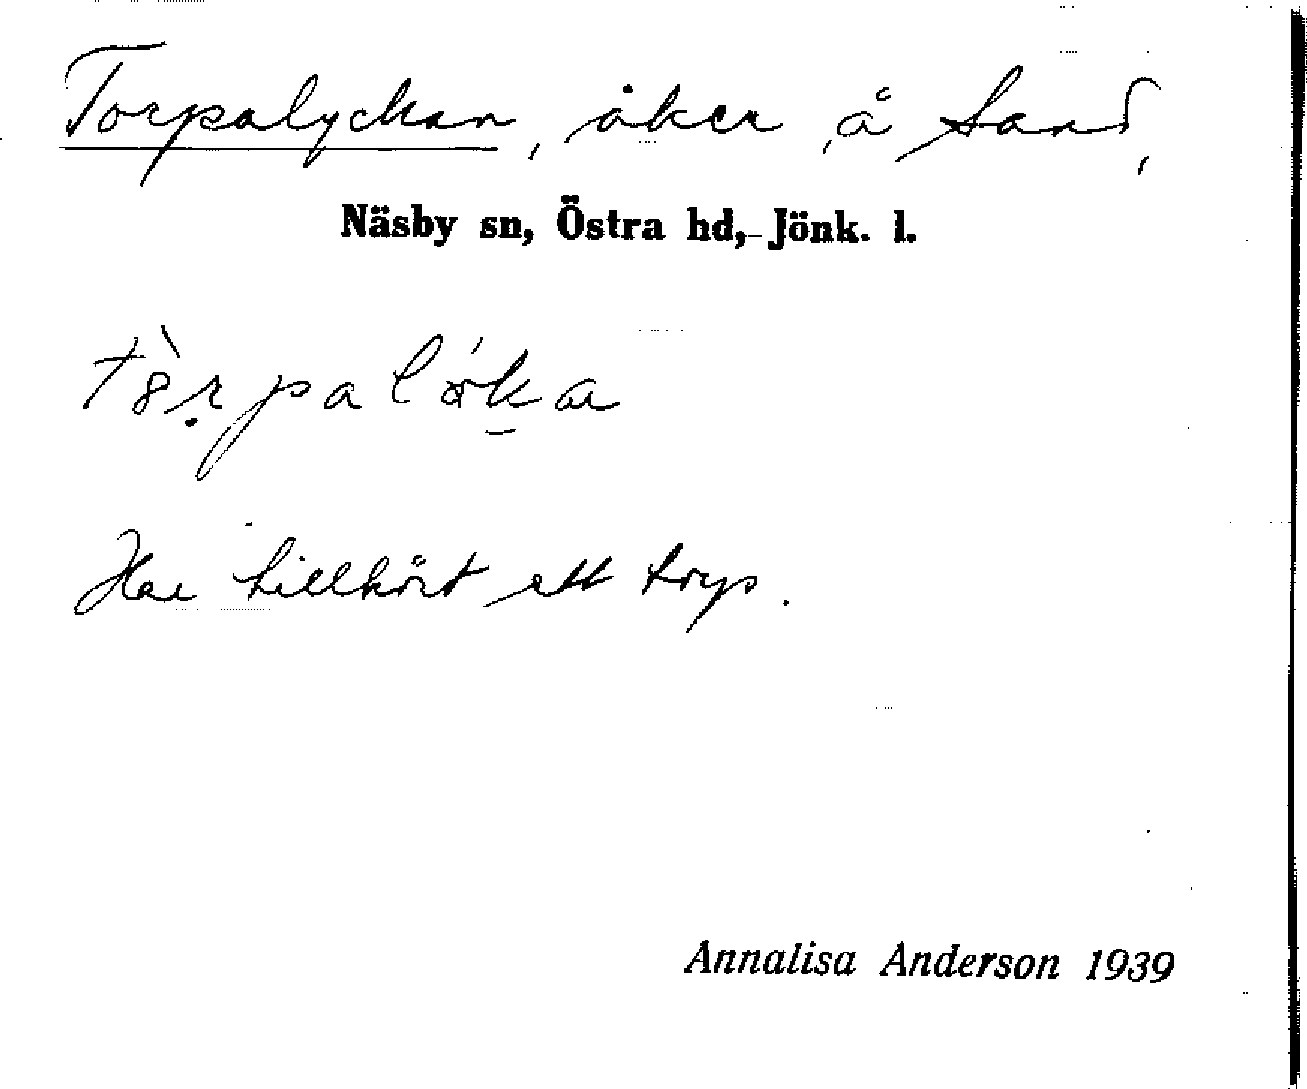 Torpalyckan, åker, å Sand,
Näsby sn, Östra hd, Jönk. l.
Har tillhört ett torp.
Annalisa Anderson 1939